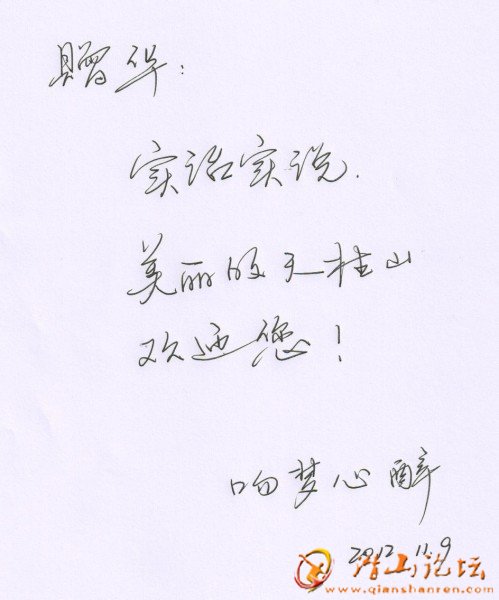 赠华：
实话实说.
美丽的天柱山
欢迎您！
吻梦心醉
2012 11.9
潜山论坛
www.qianshanren.com